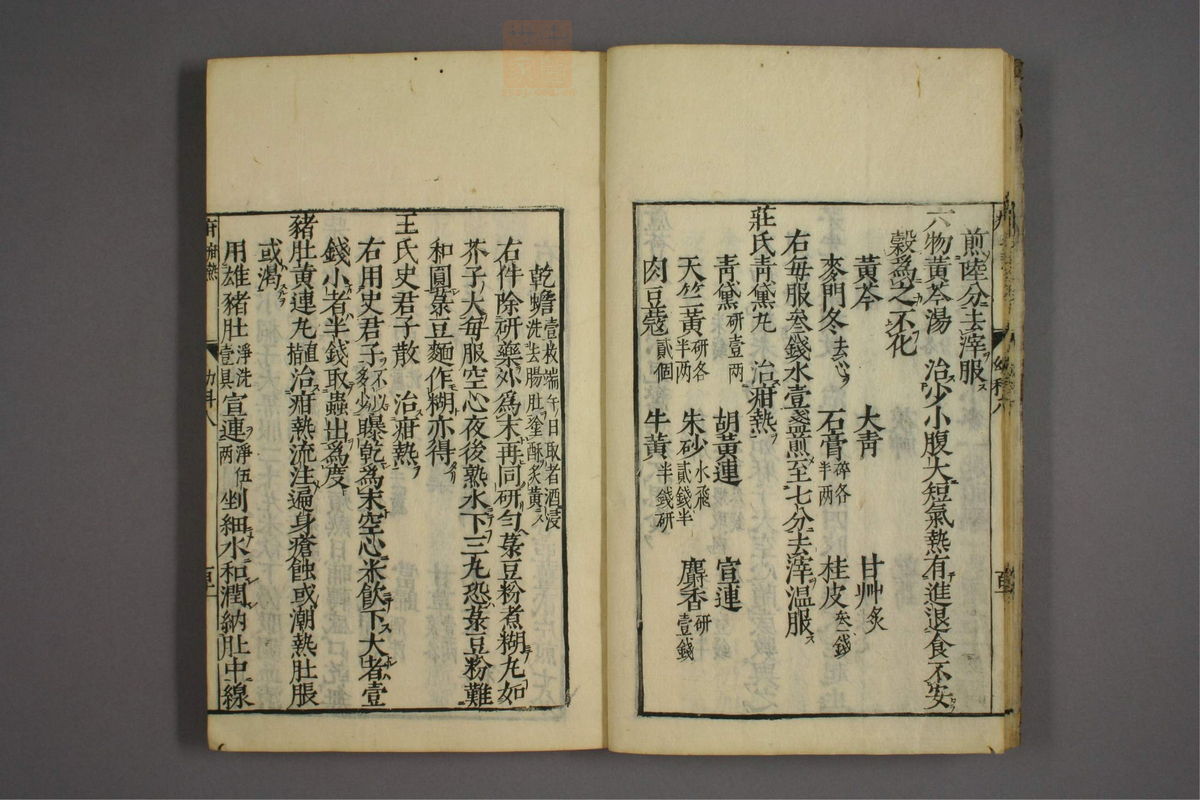 煎陸分去滓服
六物黃芩湯　治少小腹大短氣熱有進退食不安
穀爲之不花
黃芩　大青　甘艸炙
麥門冬去心　石膏碎各半両　桂皮叁錢
右每服叁錢水壹盞煎至七分去滓温服
莊氏青黛丸　治疳熱
青黛研壹両　胡黃連　宣連
天竺黃研各半両　朱砂水飛貳錢半　麝香研壹錢
肉豆蔻貳個　牛黃半錢研
乾蟾壹枚端午日取者酒浸洗去腸肚塗酥炙黃
右件除研藥外爲末再同研匀菉豆粉煮糊丸如
芥子大每服空心夜後熟水下三丸恐菉豆粉難
和圓菉豆麵作糊亦得
王氏史君子散　治疳熱
右用史君子不以多少曝乾爲末空心米飲下大者壹
錢小者半錢取蟲出爲度
豬肚黃連丸　治疳熱流注遍身瘡蝕或潮熱肚脹
或渴
用雄豬肚淨洗壹具宣連淨伍両剉細水和潤納肚中線